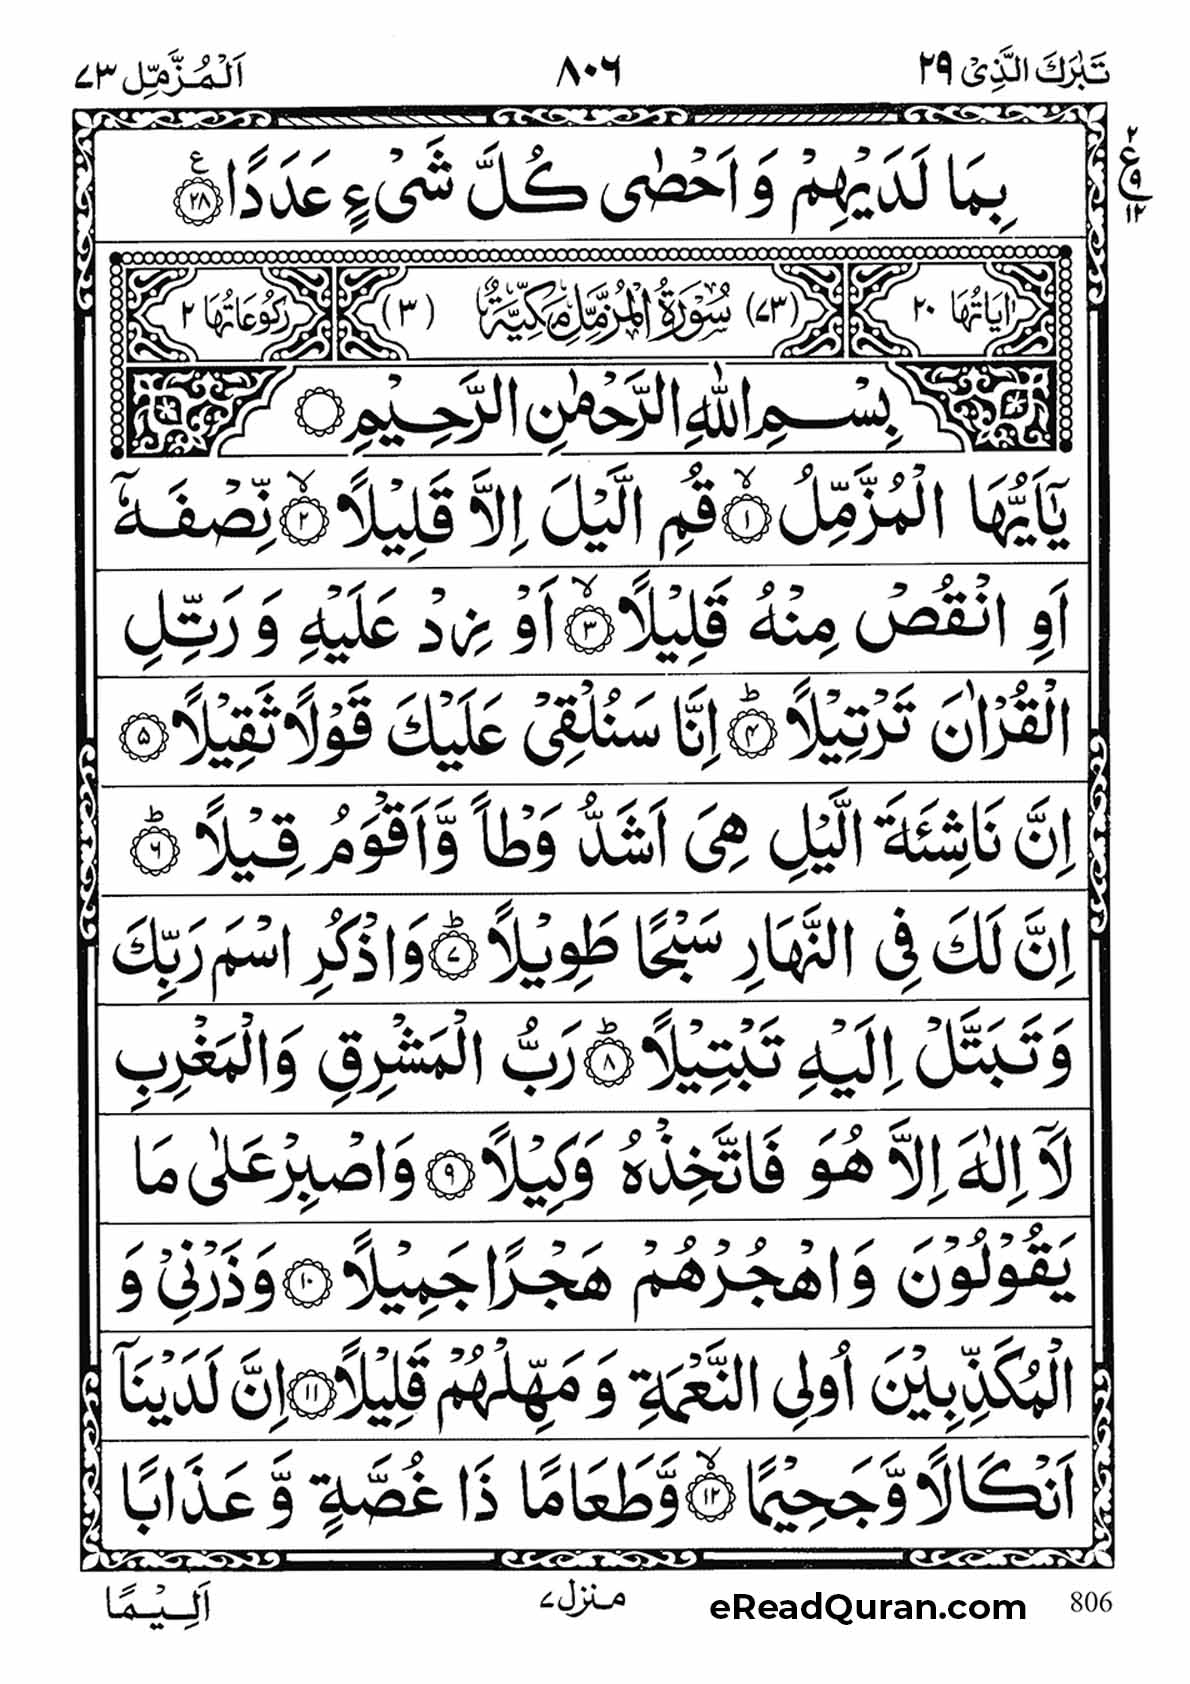 تَبٰرَكَ الَّذِىْ ٢٩ ٨٠٦ اَلْمُزَّمِّل ٧٣
٢ ع ٩ ١٢
بِمَا لَدَيْهِمْ وَ اَحْصٰى كُلَّ شَىْءٍ عَدَدًا ۧ ﴿٢٨﴾
اٰيَاتُهَا ٢٠ (٧٣) سُوْرَةُ الْمُزَّمِّلِ مَكِّيَّةٌ (٣) رُكُوْعَاتُهَا ٢
بِسْمِ اللّٰهِ الرَّحْمٰنِ الرَّحِيْمِ
يٰۤاَيُّهَا الْمُزَّمِّلُ ۙ﴿١﴾ قُمِ الَّيْلَ اِلَّا قَلِيْلًا ۙ﴿٢﴾ نِّصْفَهٗۤ
اَوِ انْقُصْ مِنْهُ قَلِيْلًا ۙ﴿٣﴾ اَوْ زِدْ عَلَيْهِ وَ رَتِّلِ
الْقُرْاٰنَ تَرْتِيْلًا ؕ﴿٤﴾ اِنَّا سَنُلْقِىْ عَلَيْكَ قَوْلًا ثَقِيْلًا ﴿٥﴾
اِنَّ نَاشِئَةَ الَّيْلِ هِىَ اَشَدُّ وَطْاً وَّاَقْوَمُ قِيْلًا ؕ﴿٦﴾
اِنَّ لَكَ فِى النَّهَارِ سَبْحًا طَوِيْلًا ؕ﴿٧﴾ وَاذْكُرِ اسْمَ رَبِّكَ
وَتَبَتَّلْ اِلَيْهِ تَبْتِيْلًا ؕ﴿٨﴾ رَبُّ الْمَشْرِقِ وَالْمَغْرِبِ
لَاۤ اِلٰهَ اِلَّا هُوَ فَاتَّخِذْهُ وَكِيْلًا ﴿٩﴾ وَاصْبِرْ عَلٰى مَا
يَقُوْلُوْنَ وَاهْجُرْهُمْ هَجْرًا جَمِيْلًا ﴿١٠﴾ وَذَرْنِىْ وَ
الْمُكَذِّبِيْنَ اُولِى النَّعْمَةِ وَ مَهِّلْهُمْ قَلِيْلًا ﴿١١﴾ اِنَّ لَدَيْنَاۤ
اَنْكَالًا وَّجَحِيْمًا ۙ﴿١٢﴾ وَّطَعَامًا ذَا غُصَّةٍ وَّ عَذَابًا
اَلِيْمًا
منزل ٧
eReadQuran.com
806